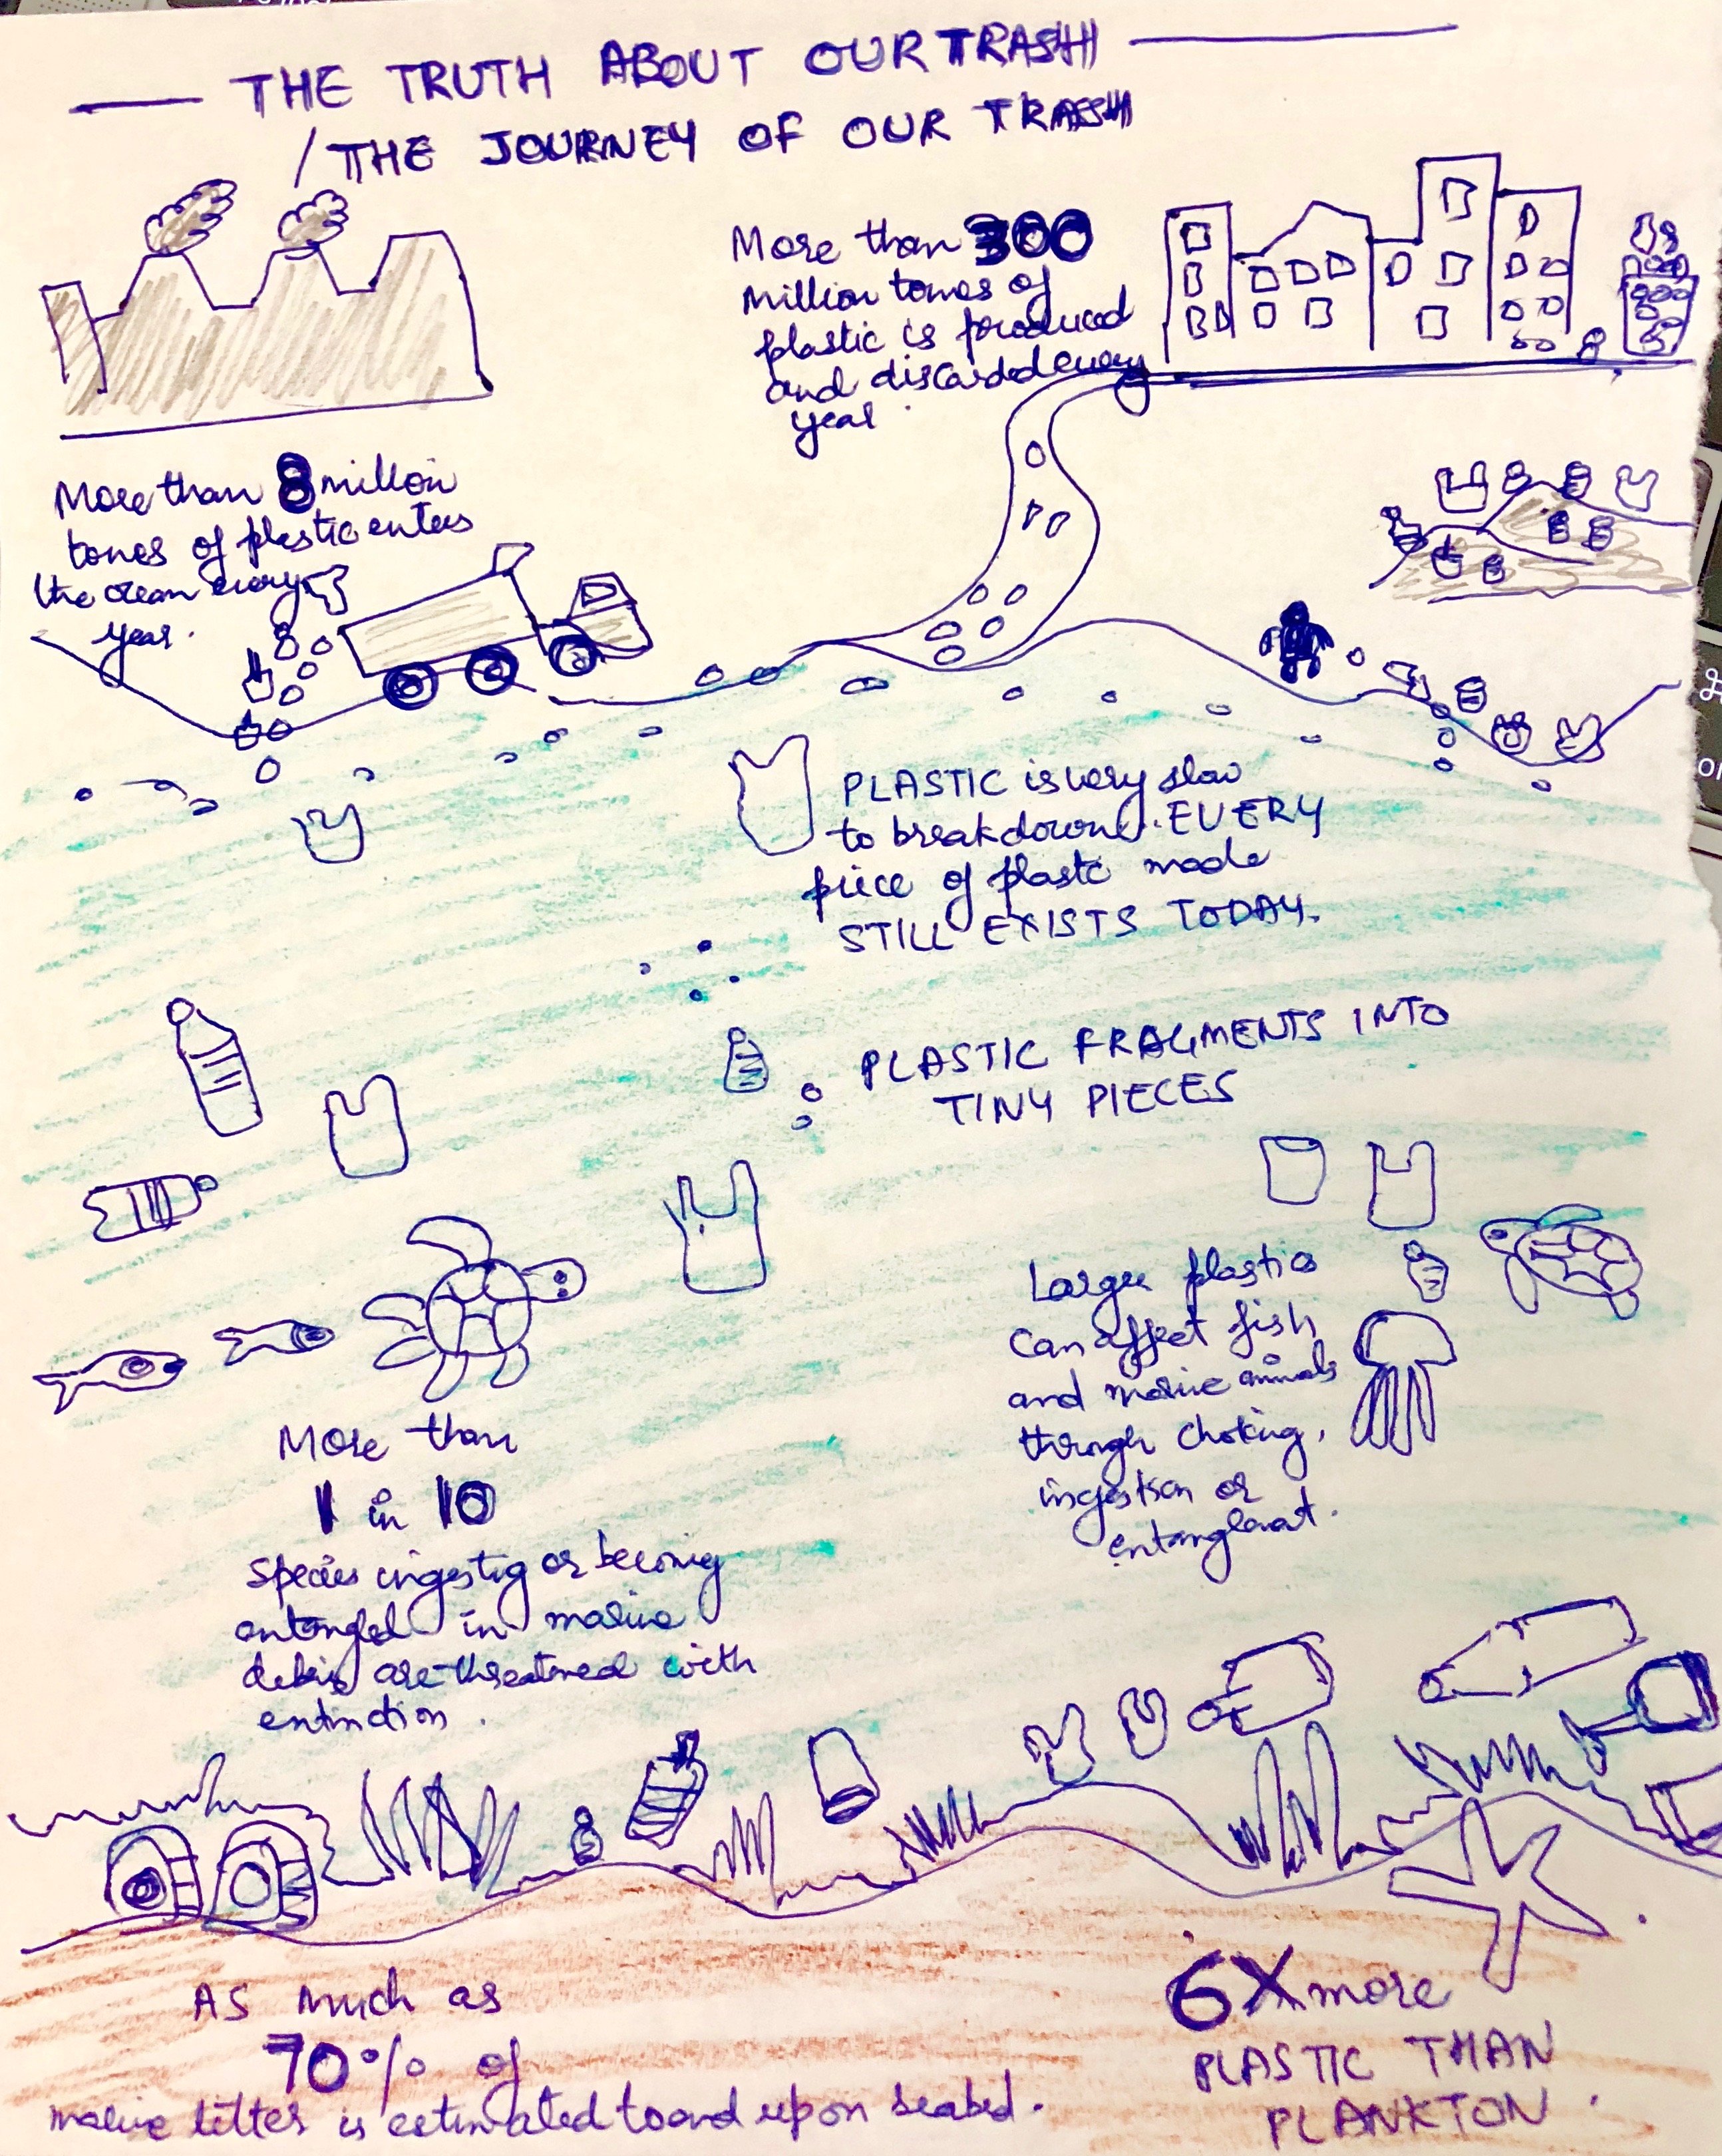 THE TRUTH ABOUT OUR TRASH
/ THE JOURNEY OF OUR TRASH
More than 300
million tones of
plastic is produced
and discarded every
year.
More than 8 million
tones of plastic enters
the ocean every
year.
PLASTIC is very slow
to breakdown. EVERY
piece of plastc made
STILL EXISTS TODAY.
PLASTIC FRAGMENTS INTO
TINY PIECES
Larger plastics
can affect fish
and marine animals
through choking,
ingestion or
More than
1 in 10
species ingestig or becomig
entangled in marine
debris are threatened with
extinction.
As much as
70% of
marine litter is estimated to end up on seabed.
6X more
PLASTIC THAN
PLANKTON.